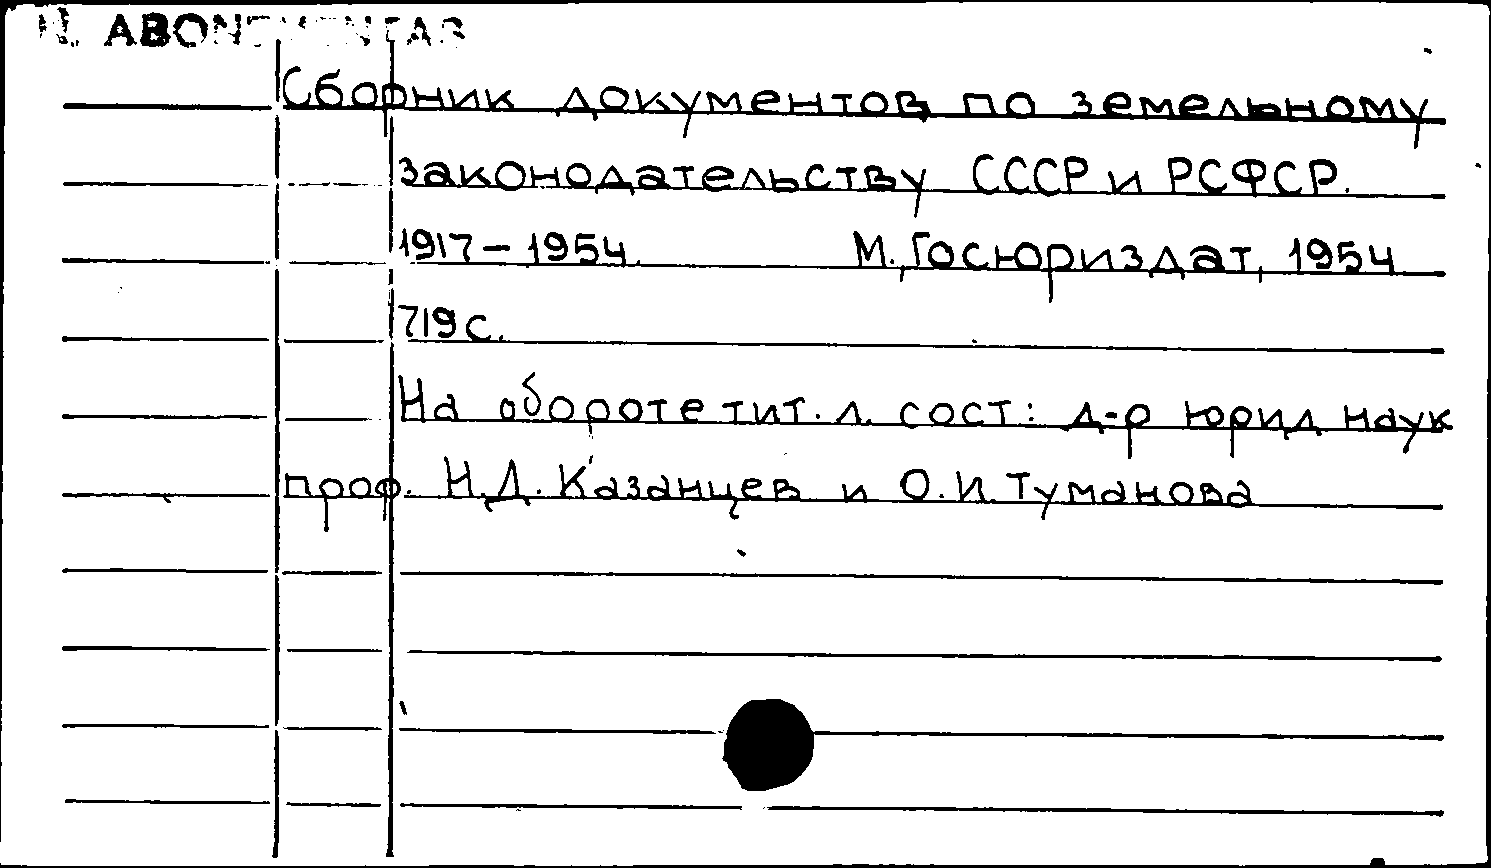 N. ABONEMENTAS
Сборник документов по земельному
законодательству СССР и РСФСР.
1917-1954. М., Госюриздат, 1954
719 с.
На обороте тит. л. сост: д-р юрид наук
проф. Н.Д. Казанцев и О.И. Туманова